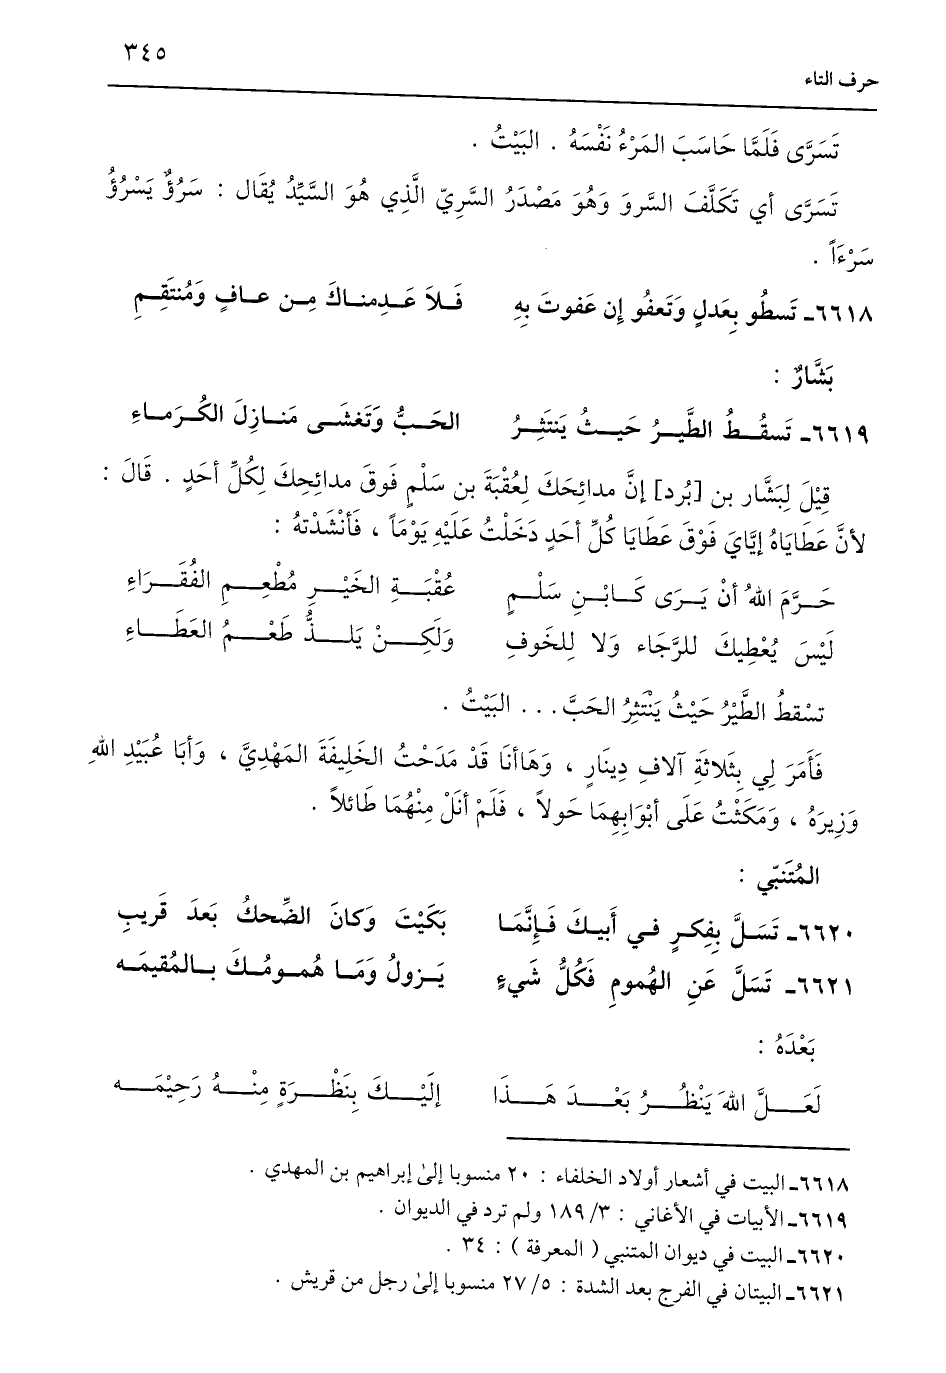 ٣٤٥
حرف التاء
تَسَرَّى فَلَمَّا حَاسَبَ المَرْءُ نَفْسَهُ . البَيْتُ .
تَسَرَّى أي تَكَلَّفَ السَّروَ وَهُوَ مَصْدَرُ السَّرِيِّ الَّذِي هُوَ السَّيِّدُ يُقَال : سَرُؤٌ يَسْرُؤُ
سَرْءَاً .
٦٦١٨ـ تَسطُو بِعَدلٍ وَتَعفُو إِن عَفوتَ بِهِ فَلاَ عَدِمناكَ مِن عافٍ وَمُنتَقِمِ
بَشَّارٌ :
٦٦١٩ـ تَسقُطُ الطَّيرُ حَيثُ يَنتَثِرُ الحَبُّ وَتَغشَى مَنازِلَ الكُرَماءِ
قِيْلَ لِبَشَّار بن [بُرد] إنَّ مدائِحَكَ لِعُقبَةَ بن سَلْمٍ فَوقَ مدائِحِكَ لِكُلِّ أحَدٍ . قَالَ :
لأنَّ عَطَايَاهُ إيَّايَ فَوْقَ عَطَايَا كُلِّ أحَدٍ دَخَلْتُ عَلَيْهِ يَوْمَاً ، فَأنْشَدْتهُ :
حَرَّمَ اللهُ أنْ يَرَى كَابْنِ سَلْمٍ عُقْبَةِ الخَيْرِ مُطْعِمِ الفُقَرَاءِ
لَيْسَ يُعْطِيكَ للرَّجَاء وَلا لِلخَوفِ وَلَكِنْ يَلذُّ طَعْمُ العَطَاءِ
تسْقطُ الطَّيْرُ حَيْثُ يَنْتَثِرُ الحَبَّ . . . البَيْتُ .
فَأَمَرَ لِي بِثَلاثَةِ آلافِ دِينَارٍ ، وَهَاأنَا قَدْ مَدَحْتُ الخَلِيفَةَ المَهْدِيَّ ، وَأبَا عُبَيْدِ اللهِ
وَزِيرَهُ ، وَمَكَثْتُ عَلَى أبْوَابِهِمَا حَولاً ، فَلَمْ أنَلْ مِنْهُمَا طَائلاً .
المُتَنبّي :
٦٦٢٠ـ تَسَلَّ بِفِكرٍ في أَبيكَ فَإِنَّمَا بَكَيْتَ وَكانَ الضِّحكُ بَعدَ قَريبِ
٦٦٢١ـ تَسَلَّ عَنِ الهُمومِ فَكُلُّ شَيءٍ يَزولُ وَمَا هُمومُكَ بِالمُقيمَه
بَعْدَهُ :
لَعَلَّ اللهَ يَنْظُرُ بَعْدَ هَذَا إلَيْكَ بِنَظْرَةٍ مِنْهُ رَحِيْمَه
٦٦١٨ـ البيت في أشعار أولاد الخلفاء : ٢٠ منسوبا إلىٰ إبراهيم بن المهدي .
٦٦١٩ـ الأبيات في الأغاني : ٣/ ١٨٩ ولم ترد في الديوان .
٦٦٢٠ـ البيت في ديوان المتنبي ( المعرفة ) : ٣٤ .
٦٦٢١ـ البيتان في الفرج بعد الشدة : ٥/ ٢٧ منسوبا إلىٰ رجل من قريش .